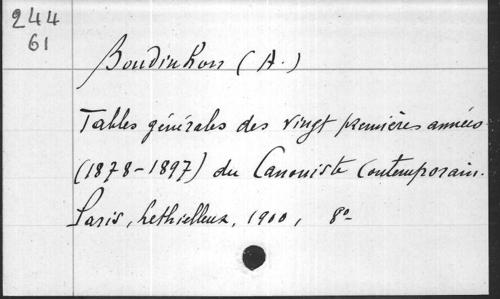 244
61
Boudinhon (A.)
Tables générales des vingt premières années
(1878-1897) du Canoniste Contemporain.
Paris, Lethielleux, 1900, 8º